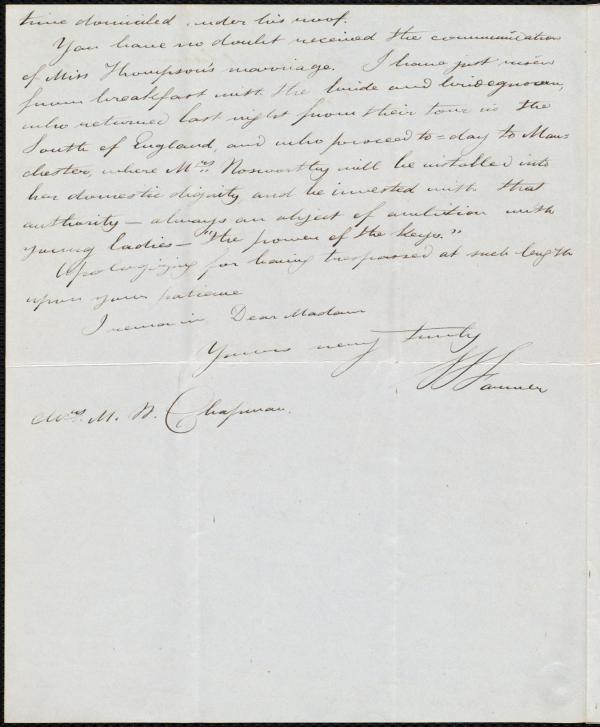 time domiciled under his roof.
You have no doubt received the communication
of Miss Thompson's marriage. I have just risen
from breakfast with the bride and bridegroom,
who returned last night from their tour in the
South of England, and who proceed to=day to Man=
chester, where Mrs. Nosworthy will be installed into
her domestic dignity and be invested with that
authority — always an object of ambition with
young ladies — "the power of the keys."
Apologizing for having trespassed at such length
upon your patience
I remain Dear Madam
Yours very truly
Farmer
Mrs. M. W. Chapman.